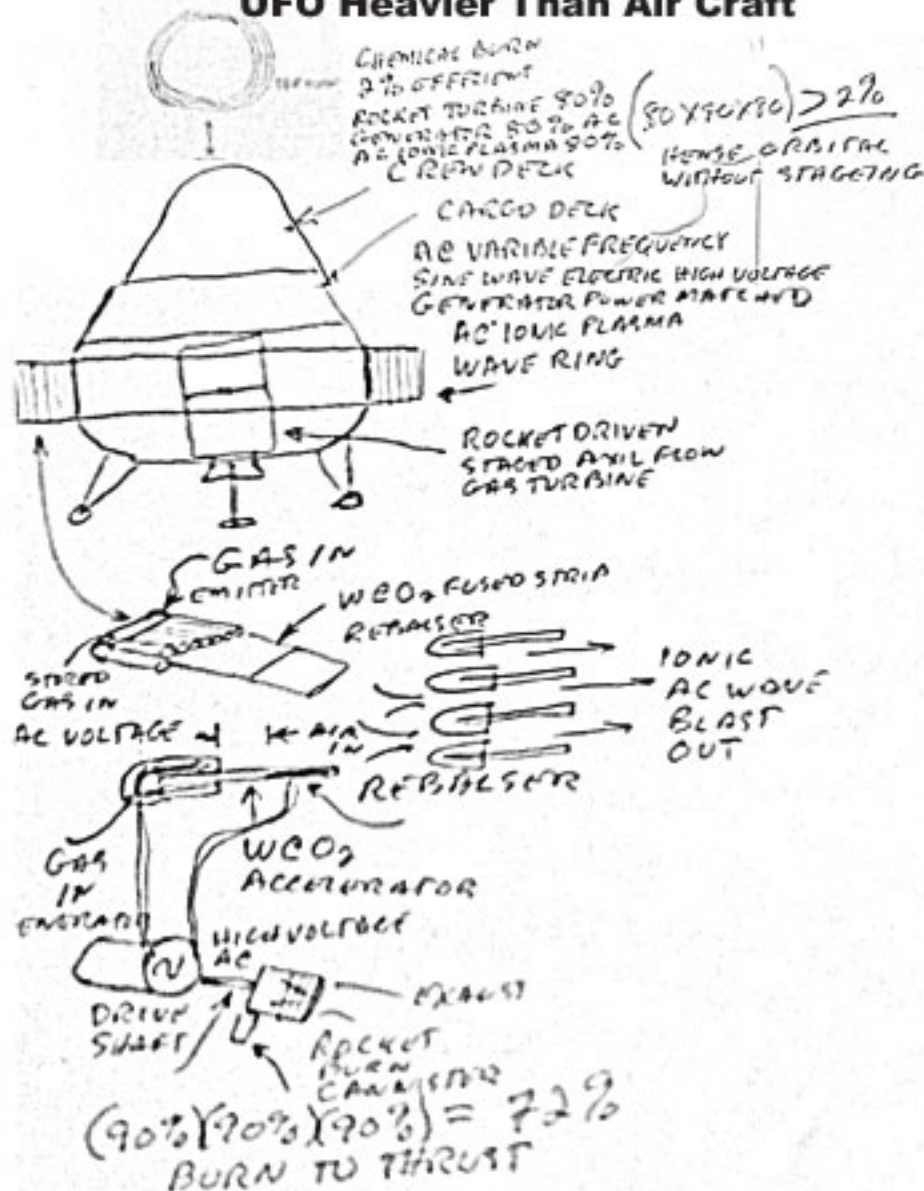 UFO Heavier Than Air Craft
CHEMICAL BURN
2% EFFECIENT
ROCKET TURBINE 80%
GENERATOR 80% AC
AC IONIC PLASMA 80%
(90X90X90) > 2%
HENSE ORBITAL
WITHOUT STAGEING
CREW DECK
CARGO DECK
AC VARIABLE FREQUENCY
SINE WAVE ELECTRIC HIGH VOLTAGE
GENERATOR POWER MATCHED
AC IONIC PLASMA
WAVE RING
ROCKET DRIVEN
STAGED AXIL FLOW
GAS TURBINE
GAS IN
EMITTER
WCO2 FUSED STRIP
STORED
GAS IN
AC VOLTAGE
AIR
IN
IONIC
AC WAVE
BLAST
OUT
GAS
IN
WCO2
ACCELERATOR
HIGH VOLTAGE
AC
DRIVE
SHAFT
EXAUST
ROCKET
BURN
CANNISTER
(90%)(90%)(90%) = 72%
BURN TO THRUST